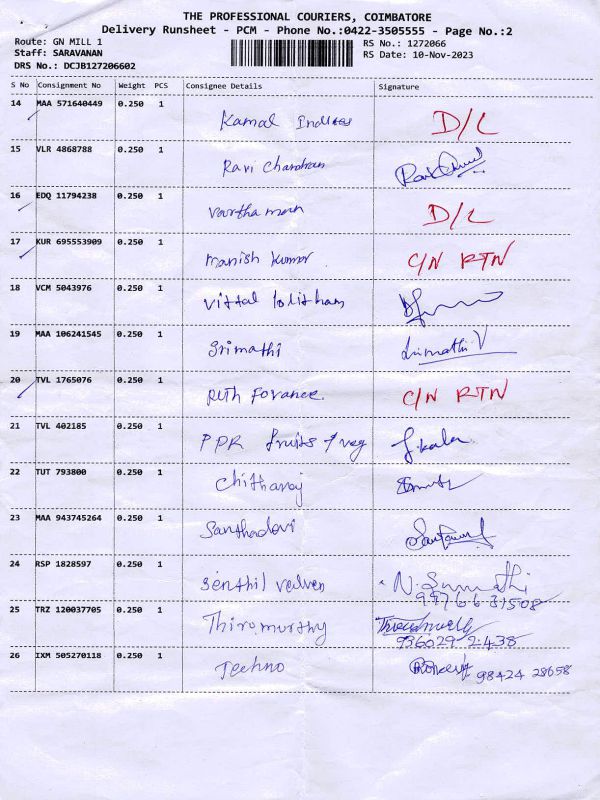 THE PROFESSIONAL COURIERS, COIMBATORE
Delivery Runsheet - PCM - Phone No.:0422-3505555 - Page No.:2
Route: GN MILL 1 RS No.: 1272066
Staff: SARAVANAN RS Date: 10-Nov-2023
DRS No.: DCJB127206602
S No Consignment No Weight PCS Consignee Details Signature
14 MAA 571640449 0.250 1 Kamal D/L
15 VLR 4868788 0.250 1 Ravi Chandran
16 EDQ 11794238 0.250 1 Vartha man D/L
17 KUR 695553909 0.250 1 Manish Kumar C/N RTN
18 VCM 5043976 0.250 1 Vittal
19 MAA 106241545 0.250 1 Srimathi Srimathi V
20 TVL 1765076 0.250 1 Ruth C/N RTN
21 TVL 402185 0.250 1 PPR fruits & veg
22 TUT 793800 0.250 1 Chitharaj
23 MAA 943745264 0.250 1 Santhadevi
24 RSP 1828597 0.250 1 Senthil N. Sumathi
99766 31508
25 TRZ 120037705 0.250 1 Thirumurthy
936029 2438
26 IXM 505270118 0.250 1 Techno 98424 28658